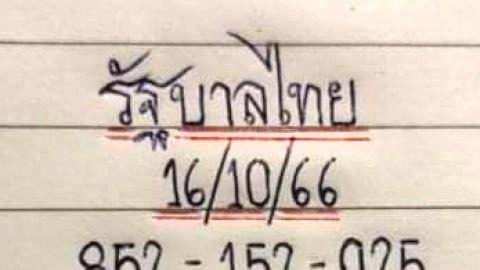 รัฐบาลไทย
16/10/66
852 - 152 - 025